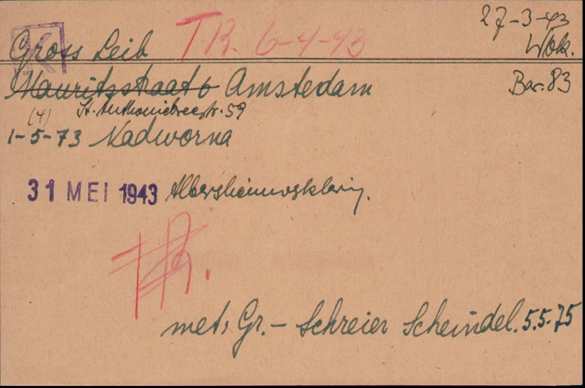 27-3-43
K
Gross Leib TR. 6-4-43 Wbk.
Mauritsstraat 6 Amstedam Bar. 83
(4) St. Anthoniebreestr. 59
1-5-73 Nadworna
31 MEI 1943
TR.
met, Gr.- Schreier Scheindel. 5.5.75